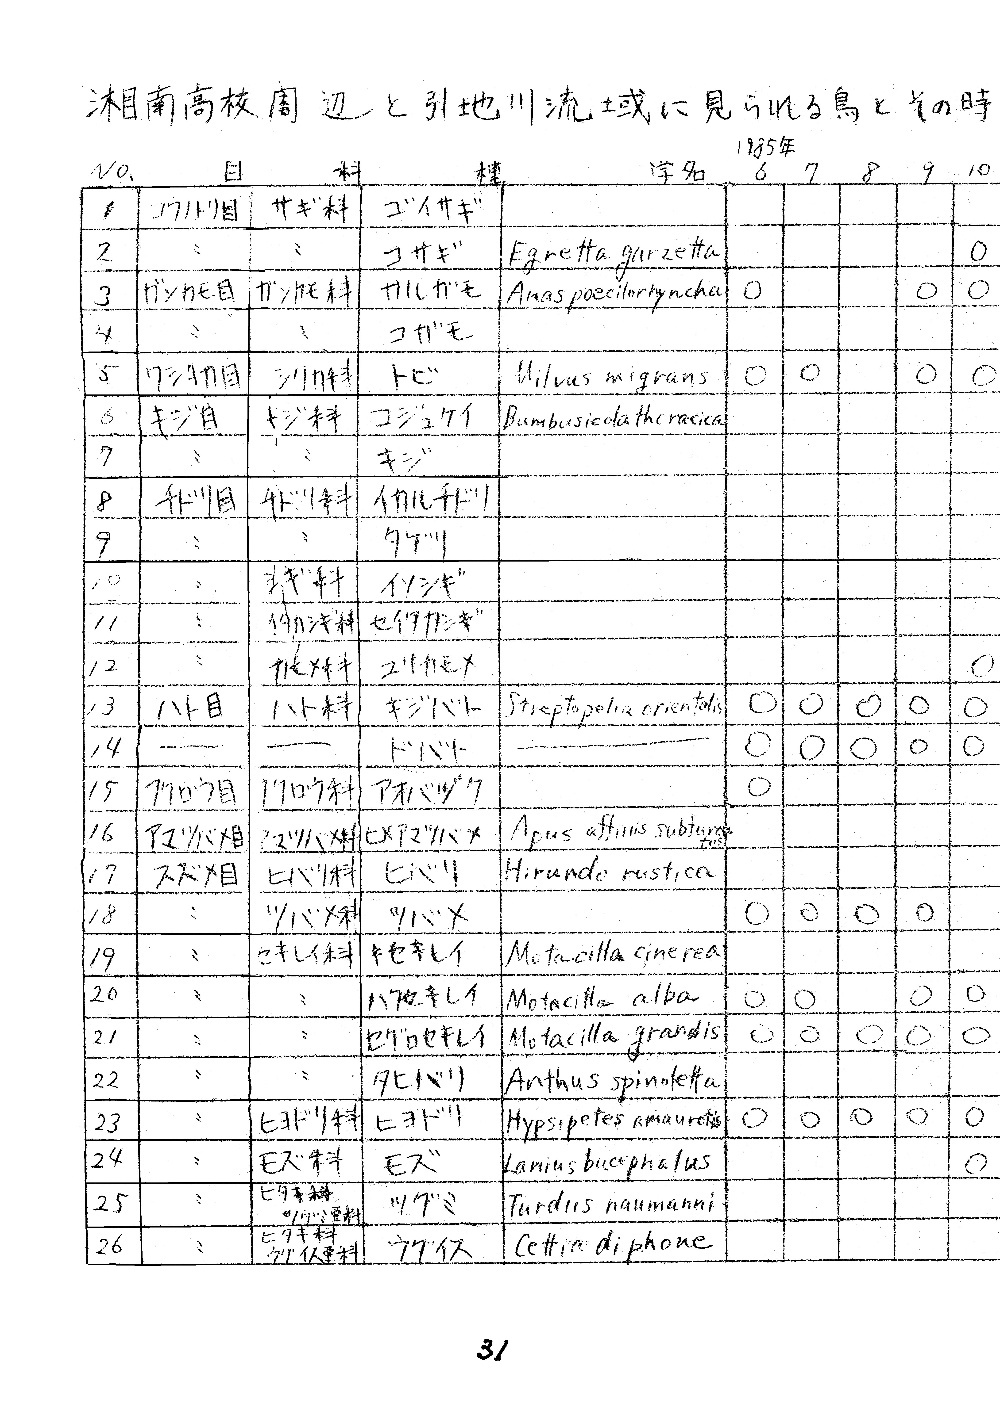 湘南高校周辺と引地川流域に見られる鳥とその時
1985年
NO. 目 科 種 学名 6 7 8 9 10
1 コウノトリ目 サギ科 ゴイサギ
2 〃 〃 コサギ Egretta garzetta ○
3 ガンカモ目 ガンカモ科 カルガモ Anas poecilorhyncha ○ ○ ○
4 〃 〃 コガモ
5 ワシタカ目 ワシタカ科 トビ Milvus migrans ○ ○ ○ ○
6 キジ目 キジ科 コジュケイ Bambusicola thoracica
7 〃 〃 キジ
8 チドリ目 チドリ科 イカルチドリ
9 〃 〃 タゲリ
10 〃 シギ科 イソシギ
11 〃 セイタカシギ
12 〃 カモメ科 ユリカモメ ○
13 ハト目 ハト科 キジバト Streptopelia orientalis ○ ○ ○ ○ ○
14 ―― ―― ドバト ―――― ○ ○ ○ ○ ○
15 フクロウ目 フクロウ科 アオバヅク ○
16 アマツバメ目 アマツバメ科 ヒメアマツバメ Apus affinis
17 スズメ目 ヒバリ科 ヒバリ Hirundo rustica
18 〃 ツバメ科 ツバメ ○ ○ ○ ○
19 〃 セキレイ科 キセキレイ Motacilla cinerea
20 〃 〃 ハクセキレイ Motacilla alba ○ ○ ○ ○
21 〃 〃 セグロセキレイ Motacilla grandis ○ ○ ○ ○ ○
22 〃 〃 タヒバリ Anthus spinoletta
23 〃 ヒヨドリ科 ヒヨドリ Hypsipetes amaurotis ○ ○ ○ ○ ○
24 〃 モズ科 モズ Lanius bucephalus ○
25 〃 ヒタキ科 ツグミ亜科 ツグミ Turdus naumanni
26 〃 ヒタキ科 ウグイス亜科 ウグイス Cettia diphone
31